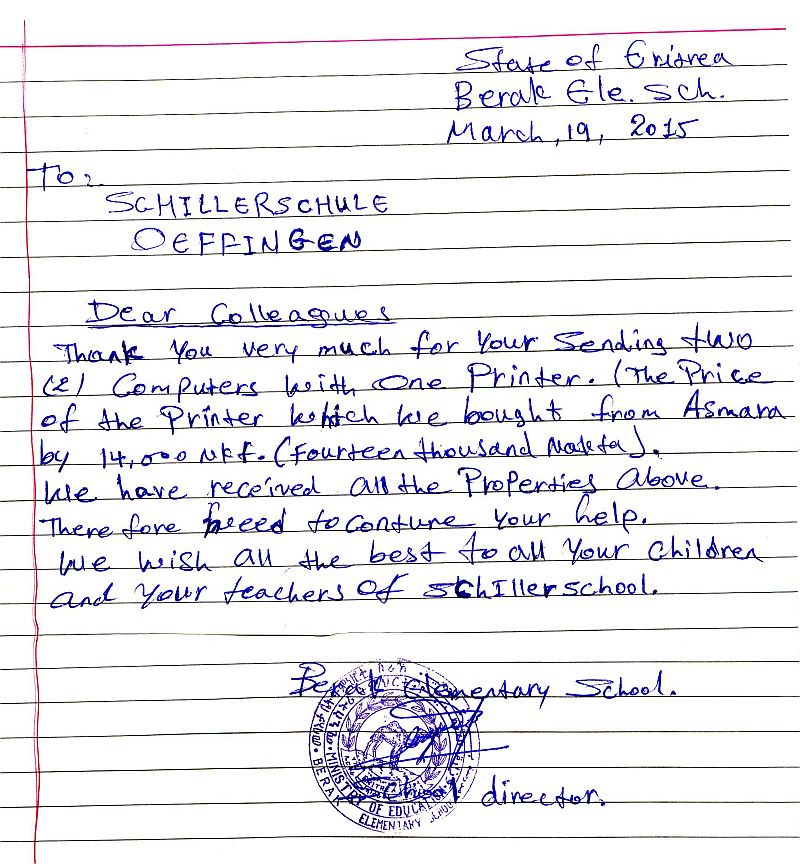 State of Eritrea
Berak Ele. Sch.
March, 19, 2015
To:
SCHILLERSCHULE
OEFFINGEN
Dear Colleagues
Thank You very much for Your Sending two
(2) Computers with One Printer. (The Price
of the Printer which we bought from Asmara
by 14,000 NKf. (Fourteen thousand Nakfa).
We have received all the Properties above.
There fore need to contune Your help.
We wish all the best to all Your children
and Your teachers of schiller school.
Berak Elementary School.
School director.
MINISTRY OF EDUCATION
BERAK ELEMENTARY SCHOOL